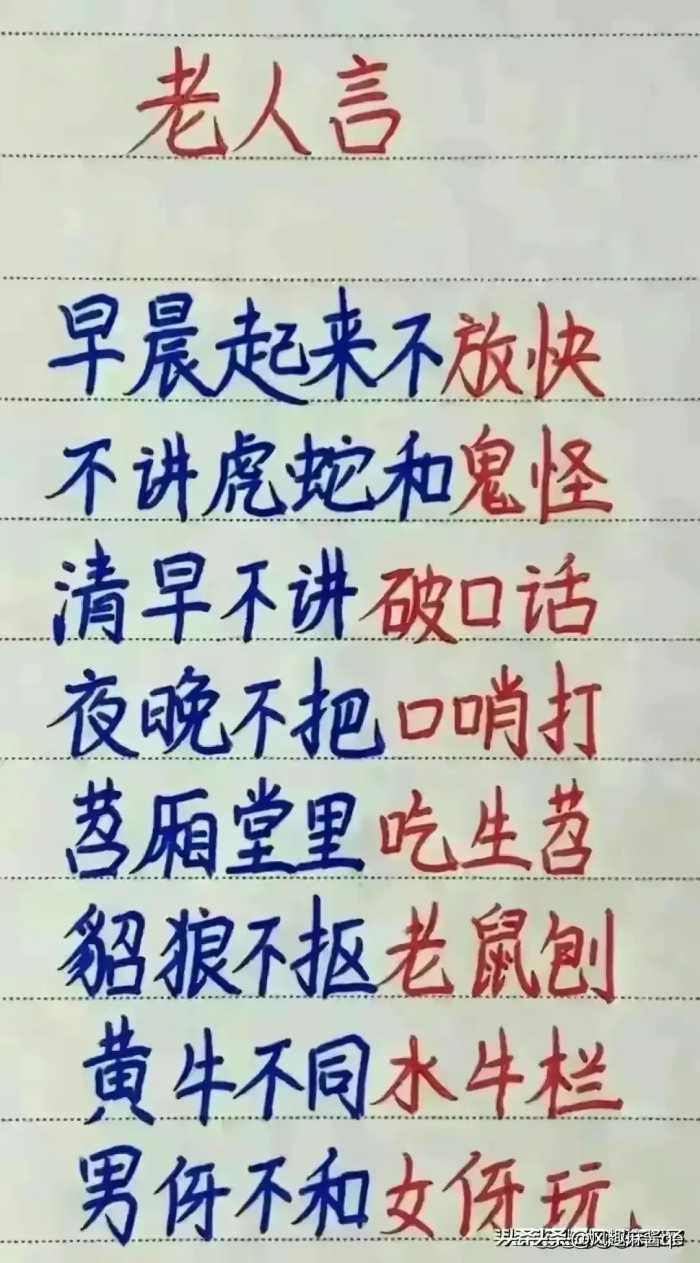 老人言
早晨起来不放快
不讲虎蛇和鬼怪
清早不讲破口话
夜晚不把口哨打
苕厢堂里吃生苕
貂狼不抠老鼠刨
黄牛不同水牛栏
男伢不和女伢玩.